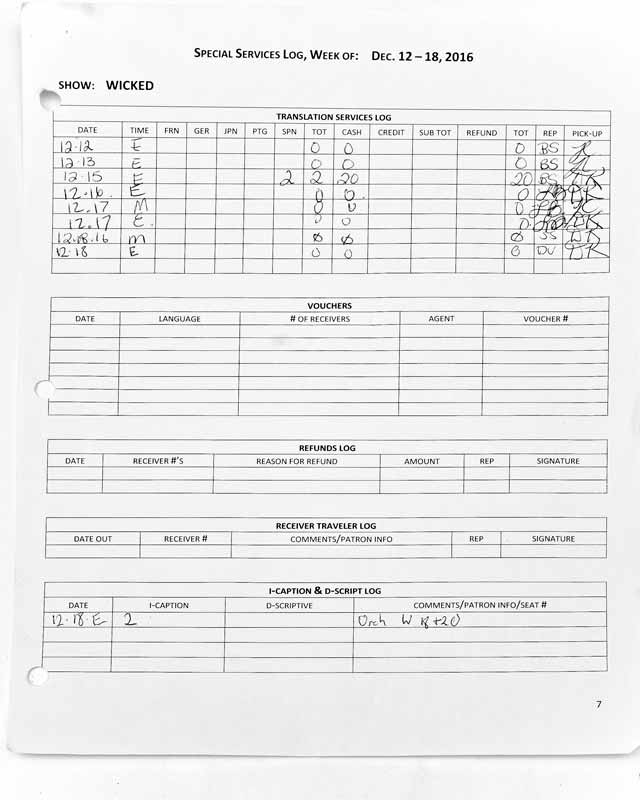 SPECIAL SERVICES LOG, WEEK OF: DEC. 12 – 18, 2016
SHOW: WICKED
TRANSLATION SERVICES LOG
DATE TIME FRN GER JPN PTG SPN TOT CASH CREDIT SUB TOT REFUND TOT REP PICK-UP
12-12 E 0 0 0 BS
12-13 E 0 0 0 BS
12-15 E 2 2 20 20 BS
12.16. E 0 0. 0
12.17 M 0 0 0
12.17 E. 0 0 0
12.18.16 M Ø Ø Ø SS
12-18 E 0 0 0 DV
VOUCHERS
DATE LANGUAGE # OF RECEIVERS AGENT VOUCHER #
REFUNDS LOG
DATE RECEIVER #'S REASON FOR REFUND AMOUNT REP SIGNATURE
RECEIVER TRAVELER LOG
DATE OUT RECEIVER # COMMENTS/PATRON INFO REP SIGNATURE
I-CAPTION & D-SCRIPT LOG
DATE I-CAPTION D-SCRIPTIVE COMMENTS/PATRON INFO/SEAT #
12-18-E 2 Orch W 18+20
7